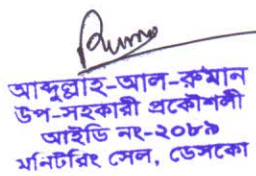 Rumo
আব্দুল্লাহ-আল-রুমান
উপ-সহকারী প্রকৌশলী
আইডি নং-২০৮৯
মনিটরিং সেল, ডেসকো